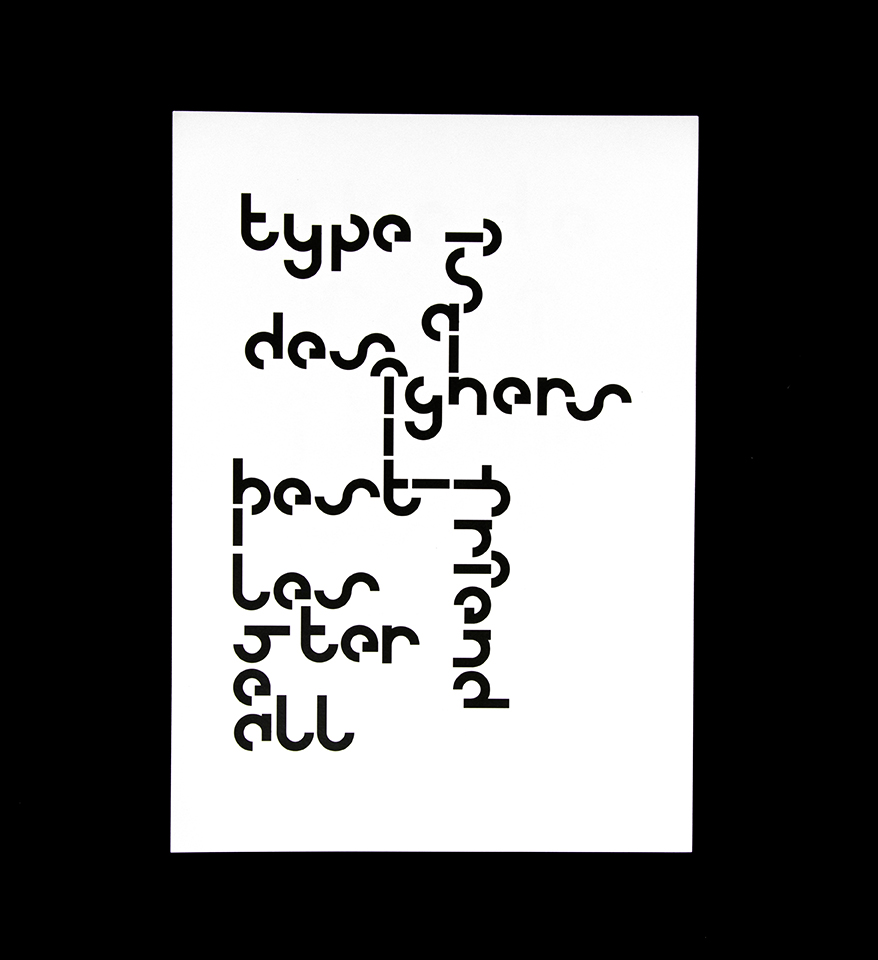 type is
a
designers
best friend
les
all